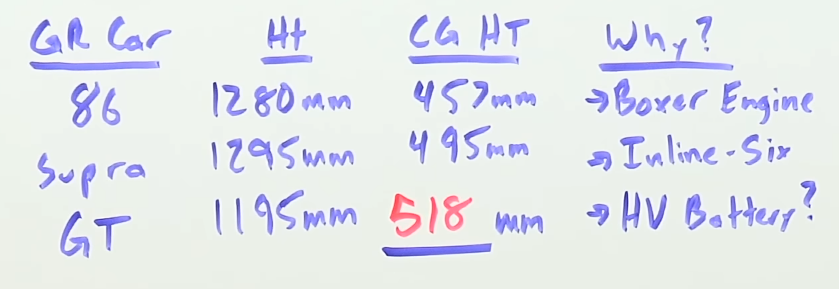 GR Car Ht CG HT Why?
86 1280mm 457mm →Boxer Engine
Supra 1295mm 495mm →Inline-Six
GT 1195mm 518 mm →HV Battery?